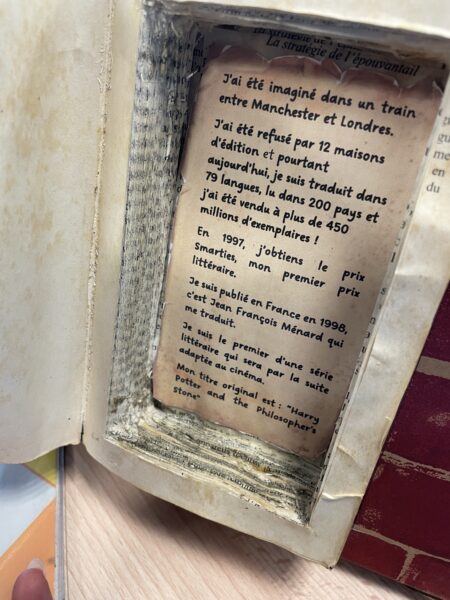 La stratégie de l'épouvantail
J'ai été imaginé dans un train
entre Manchester et Londres.
J'ai été refusé par 12 maisons
d'édition et pourtant
aujourd'hui, je suis traduit dans
79 langues, lu dans 200 pays et
j'ai été vendu à plus de 450
millions d'exemplaires !
En 1997, j'obtiens le prix
Smarties, mon premier prix
littéraire.
Je suis publié en France en 1998,
c'est Jean François Ménard qui
me traduit.
Je suis le premier d'une série
littéraire qui sera par la suite
adaptée au cinéma.
Mon titre original est : "Harry
Potter and the Philosopher's
Stone"
me
en
du